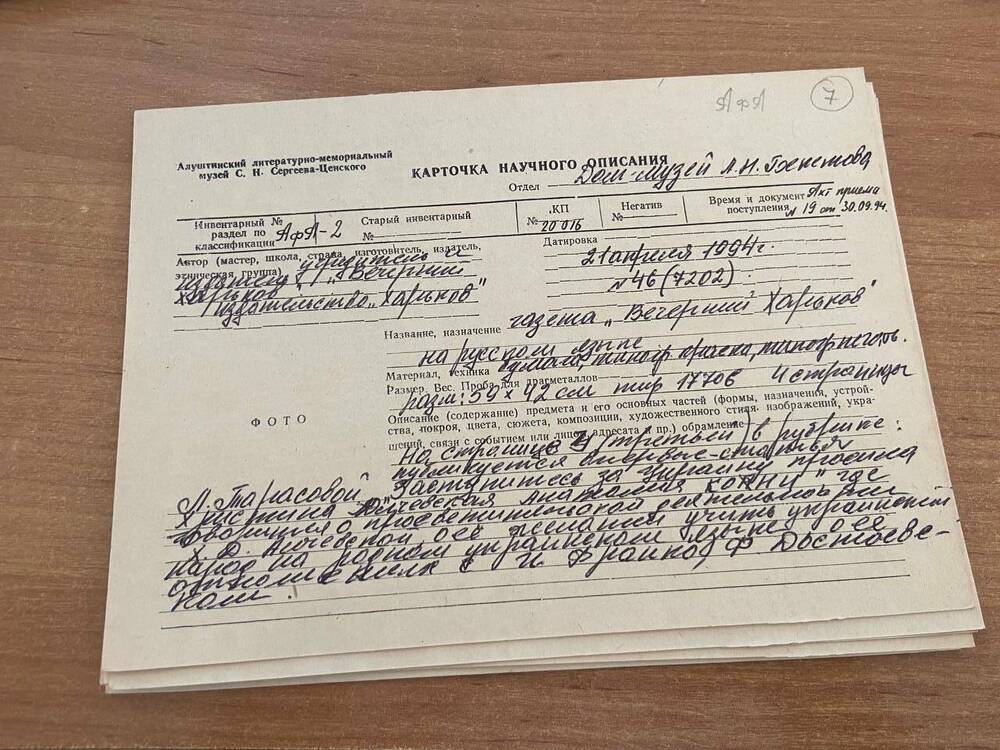 АфА
7
Алуштинский литературно-мемориальный
музей С. Н. Сергеева-Ценского
КАРТОЧКА НАУЧНОГО ОПИСАНИЯ
Отдел Дом-музей А.Н. Бекетова
Инвентарный №
раздел по
классификации АфА-2
Старый инвентарный
№
КП
№ 20016
Негатив
№
Время и документ Акт приема
поступления № 19 от 30.09.94.
Автор (мастер, школа, страна, изготовитель, издатель,
этническая группа) учредитель и
издатель "Вечерний
Харьков"
издательство "Харьков"
Датировка
21 апреля 1994г.
№ 46 (7202)
Название, назначение газета "Вечерний Харьков"
на русском языке
Материал, техника бумага, типогр краска, типогр печать.
Размер. Вес. Проба для драгметаллов
разм: 59 х 42 см тир 17706 4 страницы
Описание (содержание) предмета и его основных частей (формы, назначения, устрой-
ства, покроя, цвета, сюжета, композиции, художественного стиля, изображений, укра-
шений, связи с событием или лицом, адресата и пр.) обрамление
ФОТО
На странице 3 (третьей) в рубрике:
публикуется впервые статья
А. Тарасовой "Заступитесь за Украину просила
Христина Алчевская где
говорится о просветительской деятельности
Х. Д. Алчевской о её желании учить украинский
народ на родном украинском языке, о её
И. Франко, Ф. Достоевс-
ким.